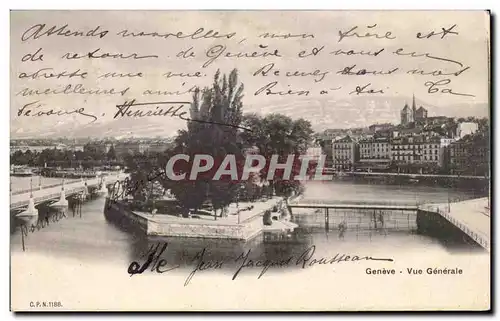 Attends nouvelles, mon frère est
de retour de Genève et vous en
adresse une vue. Recevez tous nos
meilleures amitiés. Bien à toi ta
dévouée Henriette
CPAHPHIL.COM
Ile Jean Jacques Rousseau
Genève - Vue Générale
C.P.N. 1188.